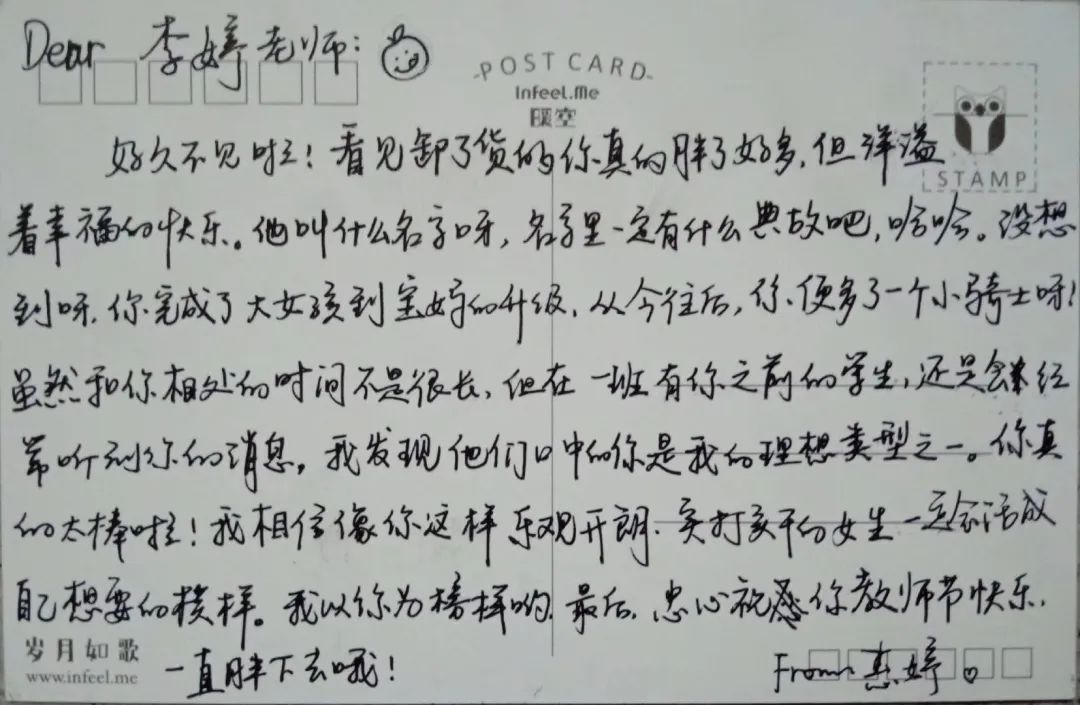 Dear 李婷老师:
POST CARD
Infeel.Me
暖空
STAMP
好久不见啦!看见卸了货的你真的胖了好多,但洋溢
着幸福的快乐。他叫什么名字呀,名字里一定有什么典故吧,哈哈。没想
到呀,你完成了大女孩到宝妈的升级,从今往后,你便多了一个小骑士呀!
虽然和你相处的时间不是很长,但在一班有你之前的学生,还是会经
常听到你的消息。我发现他们口中的你是我的理想类型之一。你真
的太棒啦!我相信像你这样乐观开朗·实打实干的女生一定会活成
自己想要的模样。我以你为榜样哟,最后,忠心祝愿你教师节快乐,
一直胖下去哦!
From: 惠婷
岁月如歌
www.infeel.me